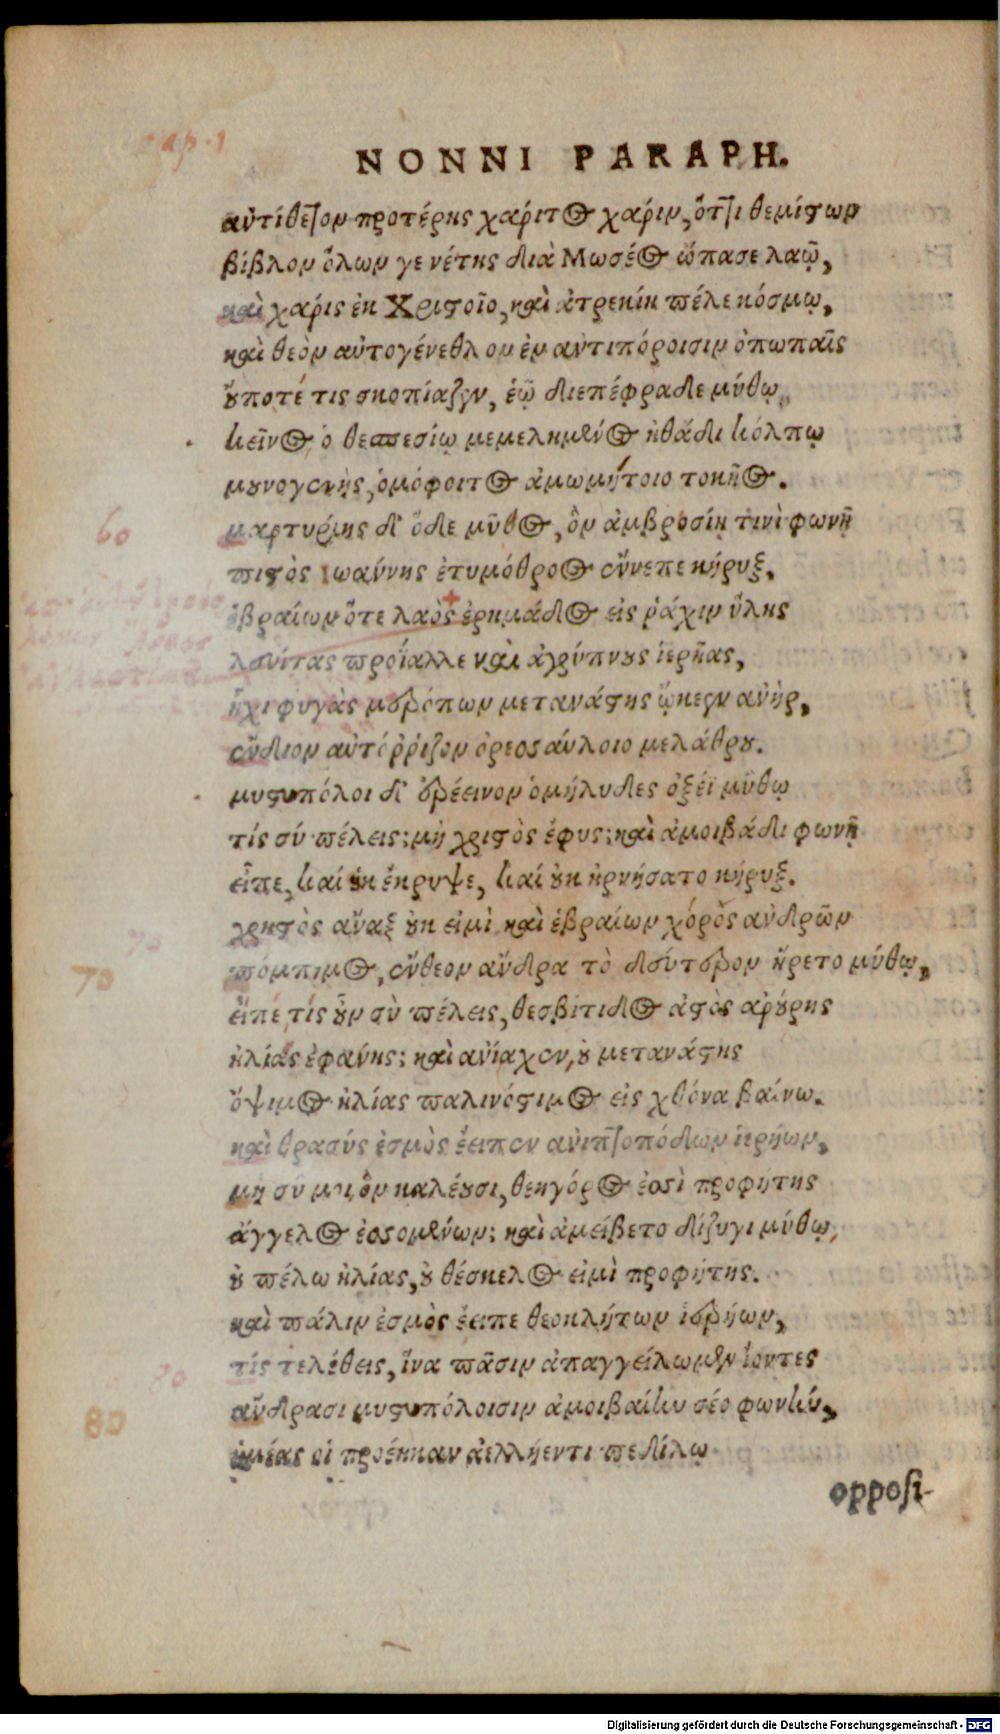 cap. 1
NONNI PARAPH.
αὐτίθετον προτέρης χάριτος χάριν, ὅτι θεμίστων
βίβλον ὅλων γενέτης διὰ Μωσέος ὤπασε λαῷ,
καὶ χάρις ἐκ Χριστοῖο, καὶ ἀτρεκίη πέλε κόσμῳ,
καὶ θεὸν αὐτογένεθλον ἐν ἀντιπόροισιν ὀπωπαῖς
οὔποτέ τις σκοπίαζεν, ἑῷ διεπέφραδε μύθῳ
κεῖνος ὁ θεσπεσίῳ μεμελημένος ἠθάδι κόλπῳ
μουνογενὴς, ὁμόφοιτος ἀμωμήτοιο τοκῆος.
60
μαρτυρίης δ' ὅδε μῦθος, ὃν ἀμβροσίῃ τινὶ φωνῇ
πιστὸς Ἰωάννης ἐτυμόθροος ἔννεπε κήρυξ,
ἑβραίων ὅτε λαὸς ἐρημάδος εἰς ῥάχιν ὕλης
λευίτας προΐαλλε καὶ ἀγρύπνους ἱερῆας,
ἧχι φυγὰς μερόπων μετανάστης ᾤκεεν ἀνὴρ,
ἔνδιον αὐτόρριζον ὀρεσσαύλοιο μελάθρου.
μυστιπόλοι δ' ἐρέεινον ὁμήλυδες ὀξέϊ μύθῳ
τίς σύ πέλεις; μὴ χριστὸς ἔφυς; καὶ ἀμοιβάδι φωνῇ
εἶπε, καί οὐκ ἔκρυψε, καί οὐκ ἠρνήσατο κήρυξ.
χρηστὸς ἄναξ οὐκ εἰμὶ καὶ ἑβραίων χόρὸς ἀνδρῶν
70
πόμπιμος, ἔνθεον ἄνδρα τὸ δεύτερον ἤρετο μύθῳ,
εἴπέ, τίς οὖν σὺ πέλεις, θεσβίτιδος ἀστὸς ἀρούρης
ἠλίας ἐφάνης; καὶ ἀνίαχεν, οὐ μετανάστης
ὄψιμος ἠλίας παλινόστιμος εἰς χθόνα βαίνω.
καὶ θρασύς ἐσμὸς ἔειπεν ἀνιπτοπόδων ἱερήων,
μὴ σύ μοι, ὃν καλέουσι, θεηγόρος ἐσσὶ προφήτης
ἄγγελος ἐσσομένων; καὶ ἀμείβετο δίζυγι μύθῳ,
οὐ πέλω ἠλίας, οὐ θέσκελος εἰμὶ προφήτης.
καὶ πάλιν ἐσμὸς ἔειπε θεοκλήτων ἱερήων,
80
τίς τελέθεις, ἵνα πᾶσιν ἀπαγγείλωμεν ἰόντες
ἀνδράσι μυστιπόλοισιν ἀμοιβαίην σέο φωνήν,
ἡμέας οἱ προέηκαν ἀελλήεντι πεδίλῳ
opposi-
Digitalisierung gefördert durch die Deutsche Forschungsgemeinschaft - DFG